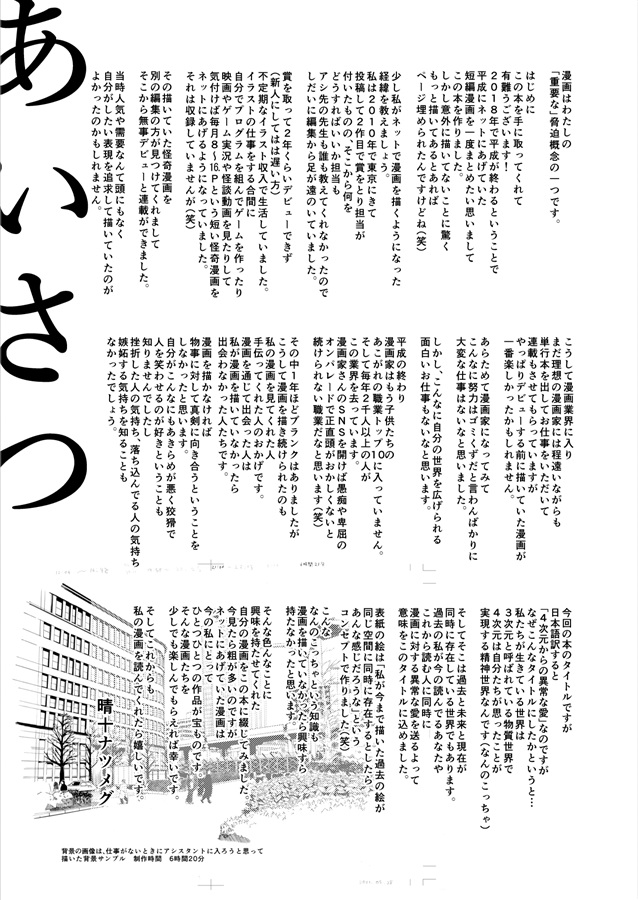 あいさつ
漫画はわたしの
「重要な」脅迫概念の一つです。
はじめに
この本を手に取ってくれて
有難うございます!
2018年で平成が終わるということで
平成にネットにあげていた
短編漫画を一度まとめたい思いまして
この本を作りました。
しかし意外に描いてないことに驚く
もっと描いてあるとあれば
ページ埋められたんですけどね(笑)
少し私がネットで漫画を描くようになった
経緯を教えましょう。
私は2010年で東京にきて
投稿して2作目で賞をとり担当が
付いたものの、そこから何を
どうすればいいか担当も
アシ先の先生も誰も教えてくれなかったので
しだいに編集から足が遠のいていました。
賞を取って2年くらいデビューできず
(新人にしてはは遅い方)
不定期なイラスト収入で生活していました。
イラストの仕事をする合間に
自分でプログラムを組んでゲームを作ったり
映画やゲーム実況や怪談動画を見たりして
気付けば毎月8~16Pという短い怪奇漫画を
ネットにあげるようになっていました。
それは収録していませんが(笑)
その描いていた怪奇漫画を
別の編集の方が見つけてくれまして
そこから無事デビューと連載ができました。
当時人気や需要なんて頭にもなく
自分がしたい表現を追求して描いていたのが
よかったのかもしれません。
こうして漫画業界に入り
まだ理想の漫画家には程遠いながらも
単行本を出してお仕事をいただいて
連載もさせてもらっていますが
やっぱりデビューする前に描いていた漫画が
一番楽しかったかもしれません。
あらためて漫画家になってみて
こんなに努力はゴミくずだと言わんばかりに
大変な仕事はないなと思いました。
しかし、こんなに自分の世界を広げられる
面白いお仕事もないなと思います。
平成の終わり
漫画家はもう子供たちの
あこがれの職業トップ10に入っていません。
そして毎年2千人以上の人が
この業界を去っています。
漫画家さんのSNSを開けば愚痴や卑屈の
オンパレードで正直頭がおかしくないと
続けられない職業だなと思います(笑)
その中1年ほどブランクはありましたが
こうして漫画を描き続けられたのも
私の漫画を見てくれた人
手伝ってくれた人のおかげです。
漫画を通じて出会った人は
私が漫画を描いていなかったら
出会わなかった人たちです。
漫画を描かなければ
物事に対して真剣に向き合うということを
しなかったと思います。
自分がこんなにもあきらめが悪く狡猾で
人を笑わせるのが好きということも
知りませんでしたし
挫折した人の気持ち、落ち込んでる人の気持ち
嫉妬する気持ちを知ることも
なかったでしょう。
今回の本のタイトルですが
日本語訳すると
「4次元からの異常な愛」なのですが
なぜこんなタイトルにしたかというと…
私たちが生きている世界は
3次元と呼ばれている物質世界で
4次元は自分たちが思ったことが
実現する精神世界なんです(なんのこっちゃ)
そしてそこは過去と未来と現在が
同時に存在している世界でもあります。
過去の私が今の読んでるあなたや
これから読む人に同時に
漫画に対する異常な愛を送るよって
意味をこのタイトルに込めました。
表紙の絵は「私が今まで描いた過去の絵が
同じ空間に同時に存在するとしたら、
あんな感じだろうな」という
コンセプトで作りました(笑)
こんな
なんのこっちゃという知識も
漫画を描いていなかったら興味すら
持たなかったと思います。
そんな色んなことに
興味を持たせてくれた
自分の漫画をこの本に綴じてみました。
今見たら粗が多いのですが
ネットにあげていた漫画は
今の私にとって
ひとつひとつの作品が宝ものです。
そんな漫画たちを
少しでも楽しんでもらえれば幸いです。
そしてこれからも
私の漫画を読んでくれたら嬉しいです。
晴十ナツメグ
背景の画像は、仕事がないときにアシスタントに入ろうと思って
描いた背景サンプル 制作時間 6時間20分